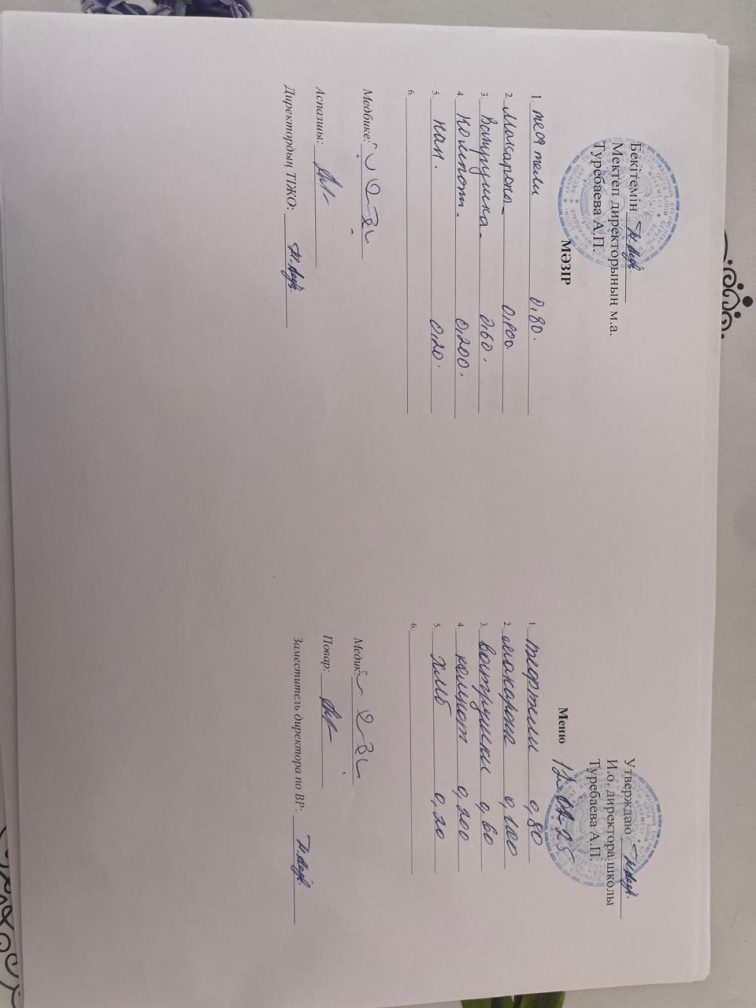 Бекітемін
Мектеп директорының м.а.
Туребаева А.П.
МӘЗІР
1. тефтели 0,80.
2. Макароны 0,100
3. Ватрушка 0,60.
4. Компот. 0,200.
5. нан. 0,20.
6.
Медбике:
Аспазшы:
Директордың ТІЖО:
Утверждаю
И.о. директора школы
Туребаева А.П.
Меню
1. тефтели 0,80
2. макароны 0,100
3. ватрушки 0,60
4. компот 0,200
5. хлеб 0,20
6.
Медик:
Повар:
Заместитель директора по ВР: